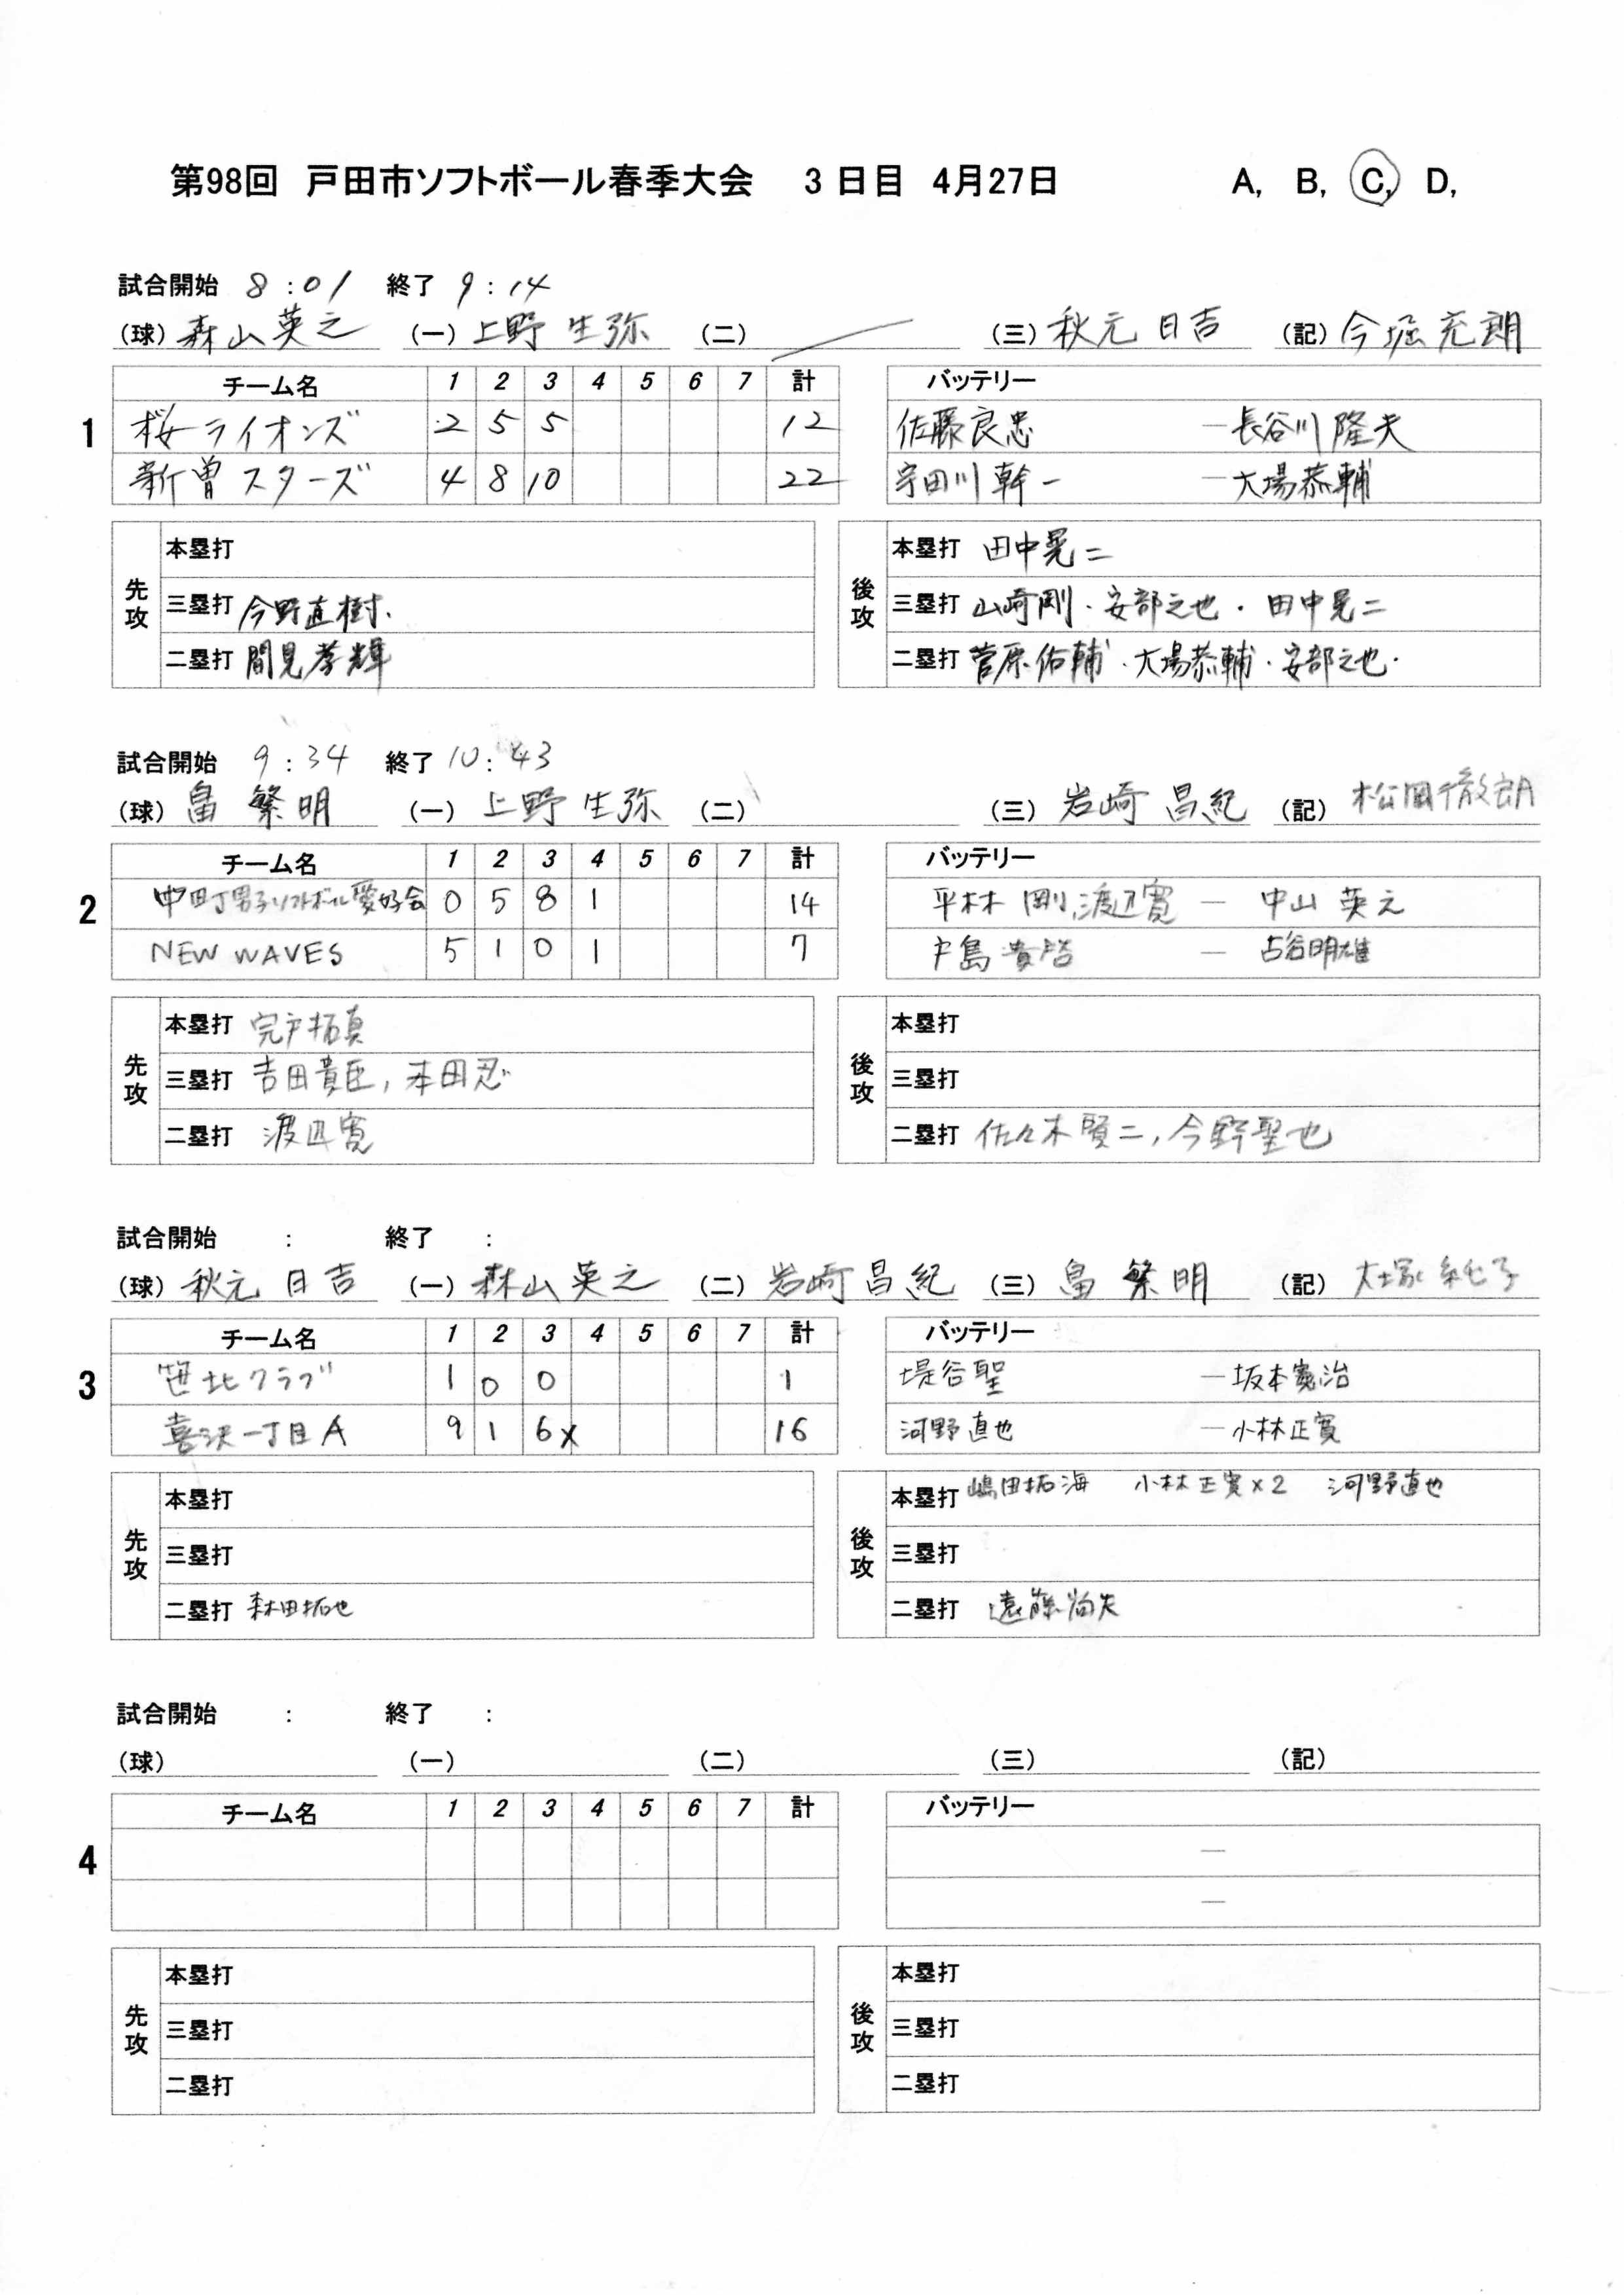 第98回 戸田市ソフトボール春季大会 3日目 4月27日 A, B, C, D,
試合開始 8:01 終了 9:14
(球) 森山英之 (一) 上野生弥 (二) (三) 秋元日吉 (記) 今堀充朗
チーム名 1 2 3 4 5 6 7 計 バッテリー
1
桜ライオンズ 2 5 5 12 佐藤良忠 ー 長谷川隆夫
新曽スターズ 4 8 10 22 宇田川幹一 ー 大場恭輔
先攻 後攻
本塁打 本塁打 田中晃二
三塁打 今野直樹. 三塁打 山崎剛・安部之也・田中晃二
二塁打 間見孝輝 二塁打 菅原佑輔・大場恭輔・安部之也・
試合開始 9:34 終了 10:43
(球) 畠繁明 (一) 上野生弥 (二) (三) 岩崎昌紀 (記) 松岡徹郎
チーム名 1 2 3 4 5 6 7 計 バッテリー
2
中町男子ソフトボール愛好会 0 5 8 1 14 平林剛,渡辺寛 ー 中山英之
NEW WAVES 5 1 0 1 7 戸島 ー 古谷明雄
先攻 後攻
本塁打 宍戸拓真 本塁打
三塁打 吉田貴臣,本田忍 三塁打
二塁打 渡辺寛 二塁打 佐々木賢二,今野聖也
試合開始 : 終了 :
(球) 秋元日吉 (一) 森山英之 (二) 岩崎昌紀 (三) 畠繁明 (記) 大塚純子
チーム名 1 2 3 4 5 6 7 計 バッテリー
3
笹北クラブ 1 0 0 1 堤谷聖 ー 坂本寛治
喜沢一丁目A 9 1 6x 16 河野直也 ー 小林正寛
先攻 後攻
本塁打 本塁打 嶋田拓海 小林正寛×2 河野直也
三塁打 三塁打
二塁打 森田拓也 二塁打 遠藤尚矢
試合開始 : 終了 :
(球) (一) (二) (三) (記)
チーム名 1 2 3 4 5 6 7 計 バッテリー
4
ー
ー
先攻 後攻
本塁打 本塁打
三塁打 三塁打
二塁打 二塁打